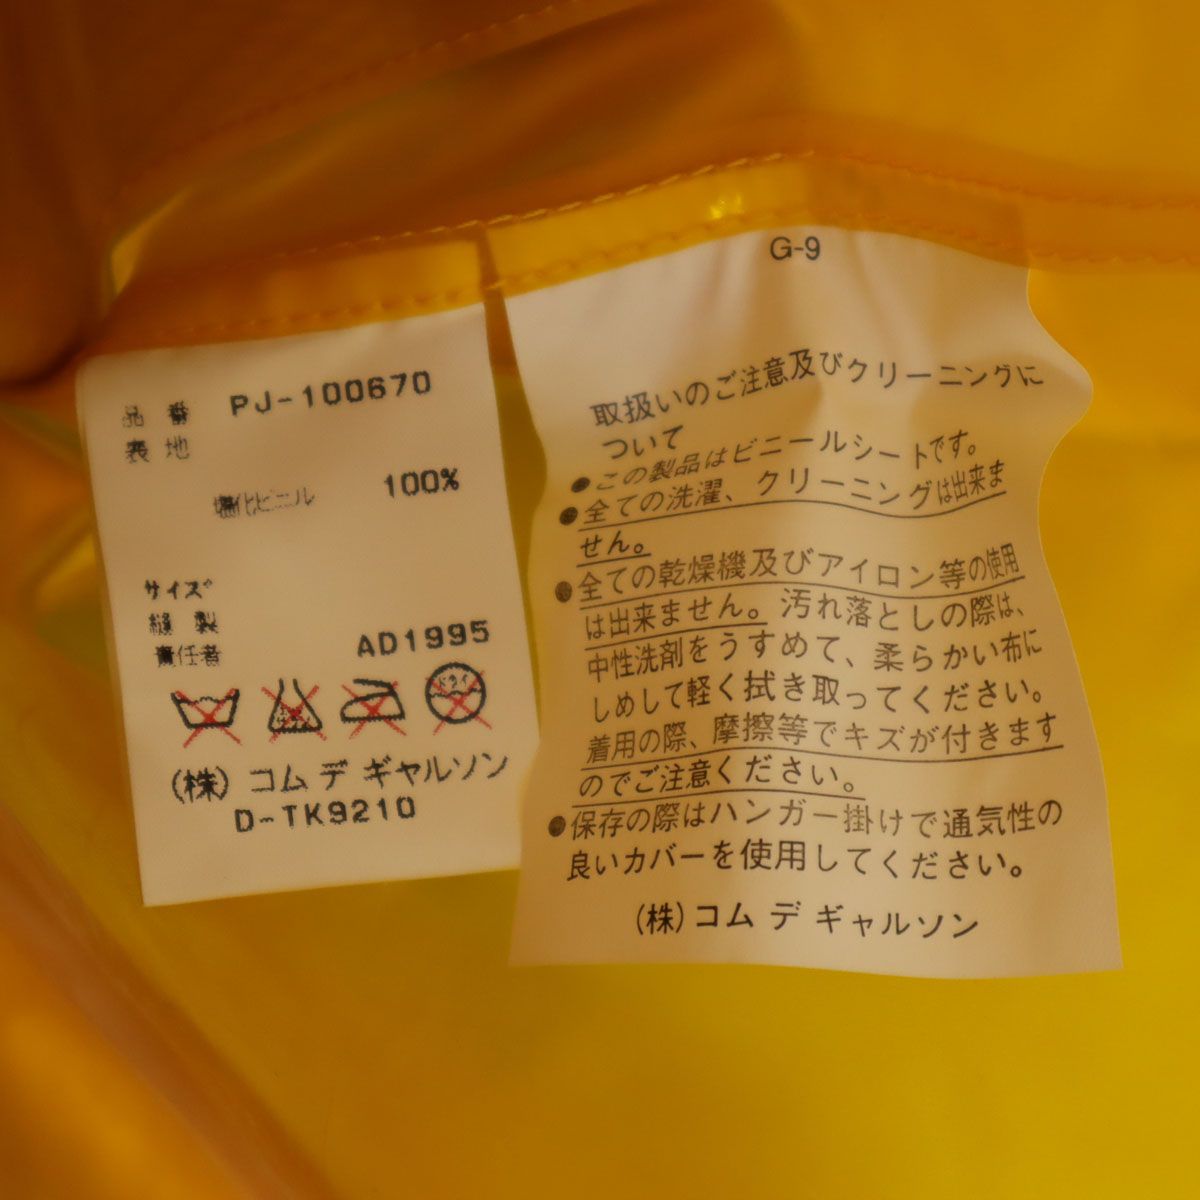 品番 PJ-100670
表地
塩化ビニル 100%
サイズ
縫製
責任者 AD1995
ドライ
(株) コム デ ギャルソン
D-TK9210
G-9
取扱いのご注意及びクリーニングに
ついて
●この製品はビニールシートです。
●全ての洗濯、クリーニングは出来ま
せん。
●全ての乾燥機及びアイロン等の使用
は出来ません。汚れ落としの際は、
中性洗剤をうすめて、柔らかい布に
しめして軽く拭き取ってください。
着用の際、摩擦等でキズが付きます
のでご注意ください。
●保存の際はハンガー掛けで通気性の
良いカバーを使用してください。
(株) コム デ ギャルソン